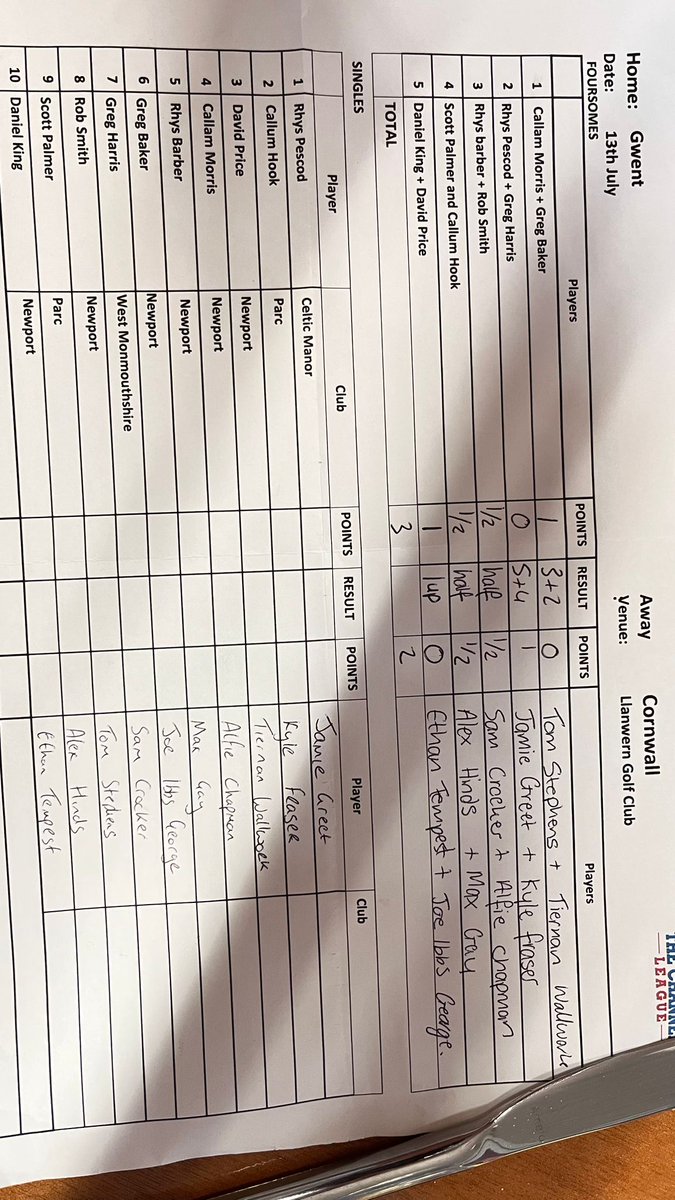 Home: Gwent Away Cornwall
Date: 13th July Venue: Llanwern Golf Club
LEAGUE
FOURSOMES
Players POINTS RESULT POINTS Players
1 Callam Morris + Greg Baker 1 3+2 0 Tom Stephens + Tiernan Wallwork
2 Rhys Pescod + Greg Harris 0 5+4 1 Jamie Greet + Kyle fraser
3 Rhys barber + Rob Smith 1/2 half 1/2 Sam Crocker + Alfie chapman
4 Scott Palmer and Callum Hook 1/2 half 1/2 Alex Hinds + Max Gay
5 Daniel King + David Price 1 1up 0 Ethan Tempest + Joe Ibbs George.
TOTAL 3 2
SINGLES
Player Club POINTS RESULT POINTS Player Club
1 Rhys Pescod Celtic Manor Jamie Greet
2 Callum Hook Parc Kyle Fraser
3 David Price Newport Tiernan Wallwork
4 Callam Morris Newport Alfie Chapman
5 Rhys Barber Newport Max Gay
6 Greg Baker Newport Joe Ibbs George
7 Greg Harris West Monmouthshire Sam Crocker
8 Rob Smith Newport Tom Stephens
9 Scott Palmer Parc Alex Hinds
10 Daniel King Newport Ethan Tempest